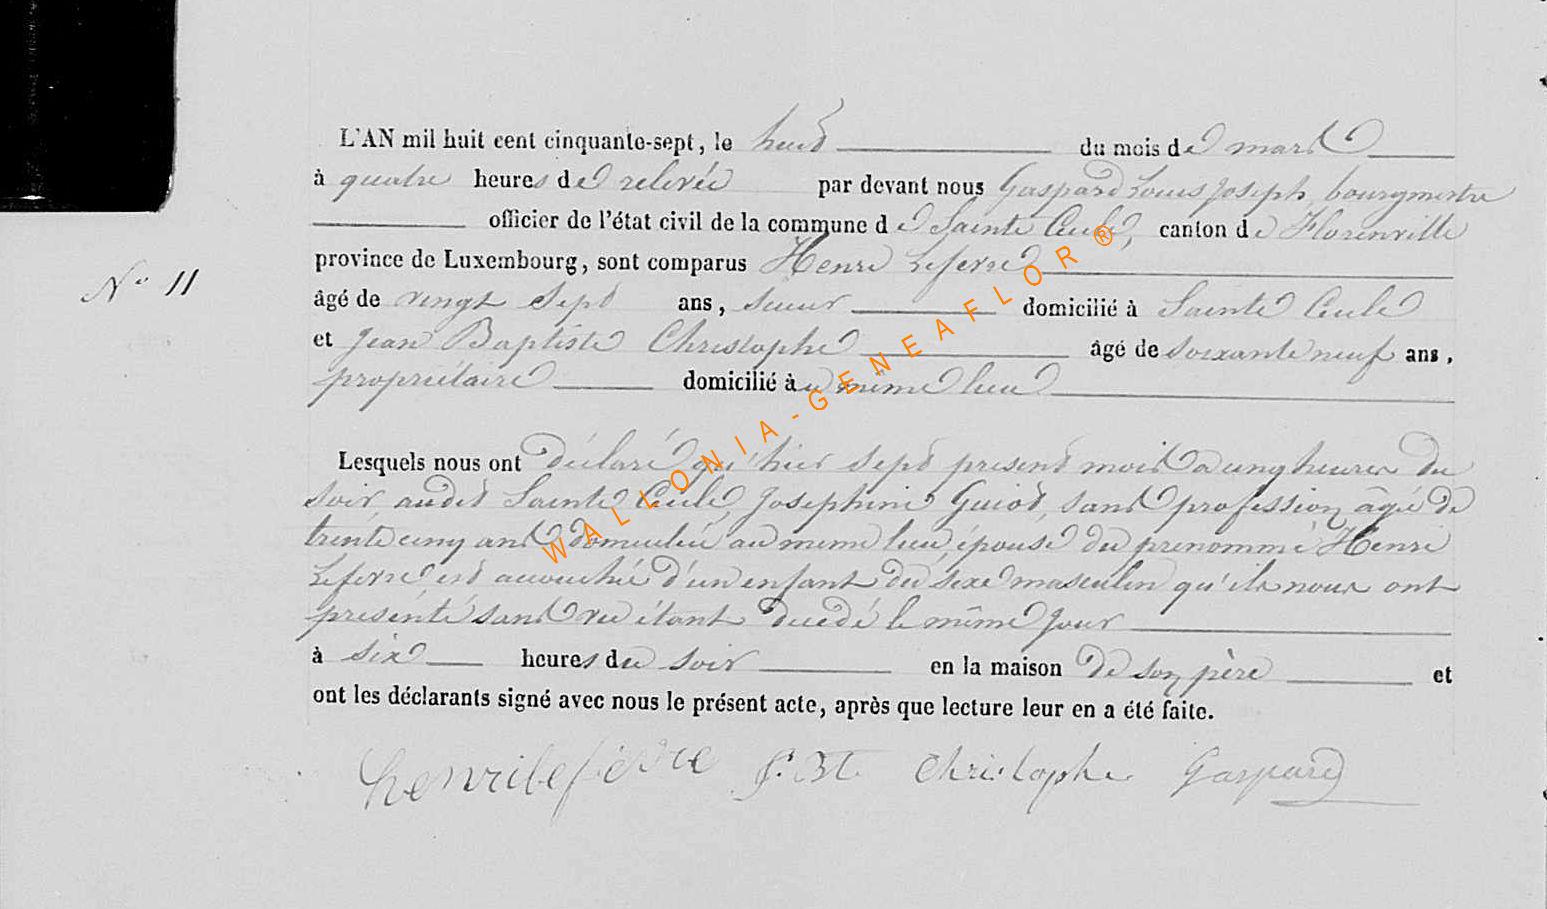 L'AN mil huit cent cinquante-sept, le huit du mois de mars
à quatre heures de relevée par devant nous Gaspard Louis Joseph, bourgmestre
officier de l'état civil de la commune de Sainte Cécile, canton de Florenville
province de Luxembourg, sont comparus Henri Lefevre
N° 11
âgé de vingt sept ans, domicilié à Sainte Cécile
et Jean Baptiste Christophe âgé de soixante neuf ans,
propriétaire domicilié à au même lieu
Lesquels nous ont déclaré que hier sept present mois a cinq heures du
soir, audit Sainte Cécile, Josephine Guiot, sans profession âgée de
trente cinq ans domiciliée au meme lieu, épouse du prenommé Henri
Lefevre est accouchée d'un enfant du sexe masculin qu'ils nous ont
présenté sans vie étant decedé le même jour
à six heures du soir en la maison de son père et
ont les déclarants signé avec nous le présent acte, après que lecture leur en a été faite.
henri lefèvre J. Bte Christophe Gaspard
WALLONIA-GENEAFLOR®